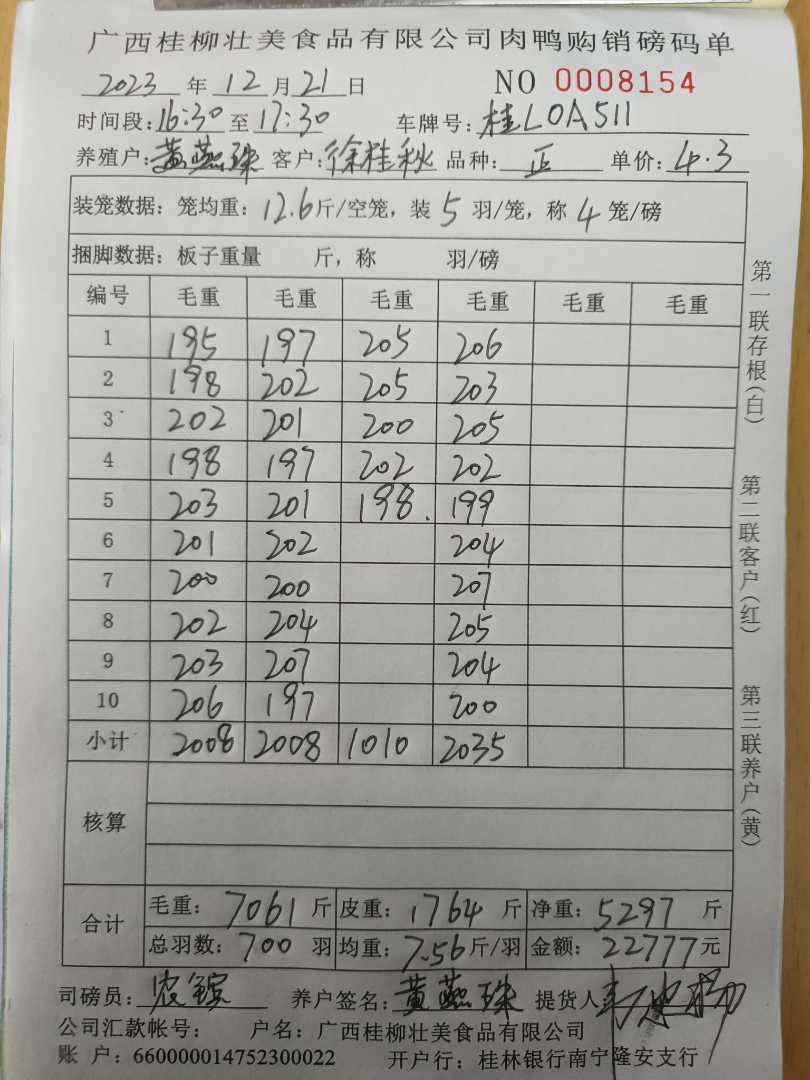 广西桂柳壮美食品有限公司肉鸭购销磅码单
2023 年 12 月 21 日 NO 0008154
时间段: 16:30 至 17:30 车牌号: 桂L0A511
养殖户: 黄燕珠 客户: 徐桂秋 品种: 正 单价: 4.3
装笼数据: 笼均重: 12.6 斤/空笼, 装 5 羽/笼, 称 4 笼/磅
捆脚数据: 板子重量 斤, 称 羽/磅
编号 毛重 毛重 毛重 毛重 毛重 毛重
1 195 197 205 206
2 198 202 205 203
3 202 201 200 205
4 198 197 202 202
5 203 201 198. 199
6 201 202 204
7 200 200 207
8 202 204 205
9 203 207 204
10 206 197 200
小计 2008 2008 1010 2035
核算
合计 毛重: 7061 斤 皮重: 1764 斤 净重: 5297 斤
总羽数: 700 羽 均重: 7.56 斤/羽 金额: 22777 元
司磅员: 农 养户签名: 黄燕珠 提货人
公司汇款帐号: 户名: 广西桂柳壮美食品有限公司
账 户: 660000014752300022 开户行: 桂林银行南宁隆安支行
第一联存根(白)
第二联客户(红)
第三联养户(黄)